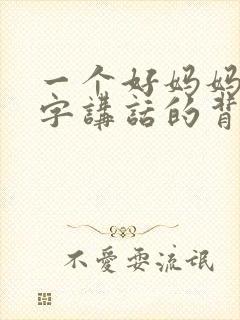 一个好妈妈
字講話的背
不愛耍流氓